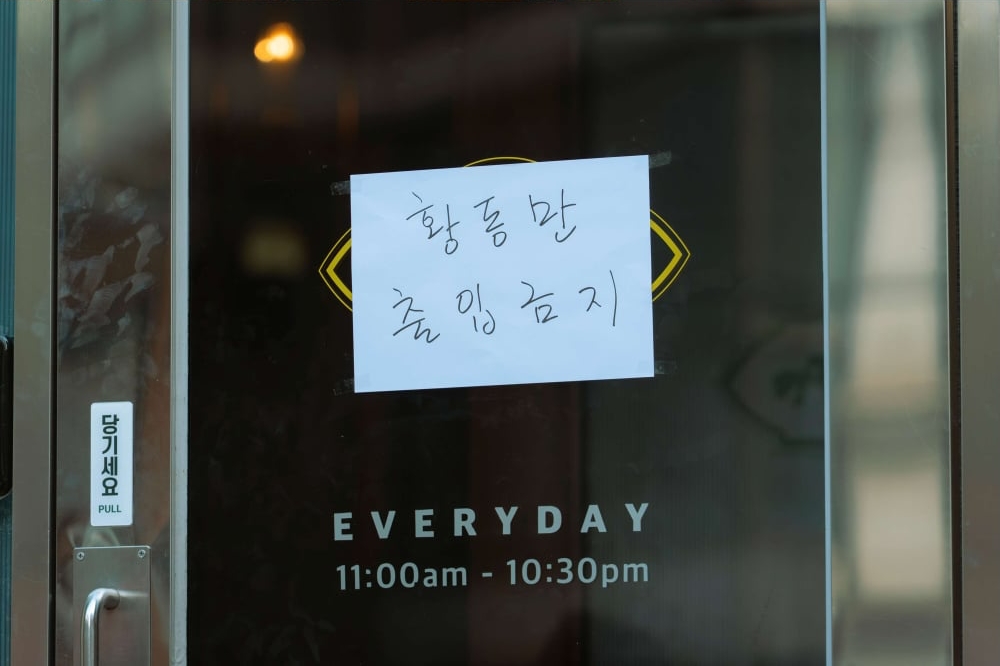 황동만
출입금지
당기세요
PULL
EVERYDAY
11:00am - 10:30pm